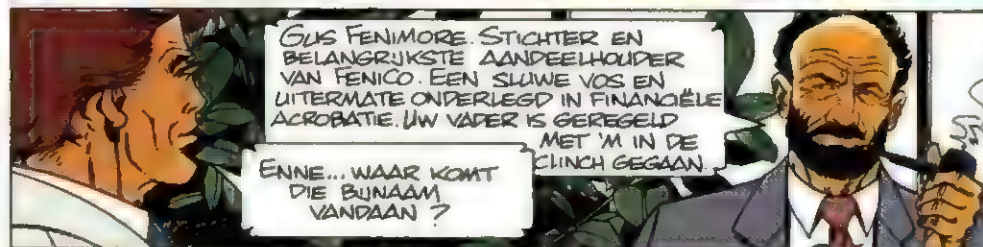 GUS FENIMORE. STICHTER EN
BELANGRIJKSTE AANDEELHOUDER
VAN FENICO. EEN SLUWE VOS EN
UITERMATE ONDERLEGD IN FINANCIËLE
ACROBATIE. UW VADER IS GEREGELD
MET 'M IN DE
CLINCH GEGAAN.
ENNE... WAAR KOMT
DIE BIJNAAM
VANDAAN ?